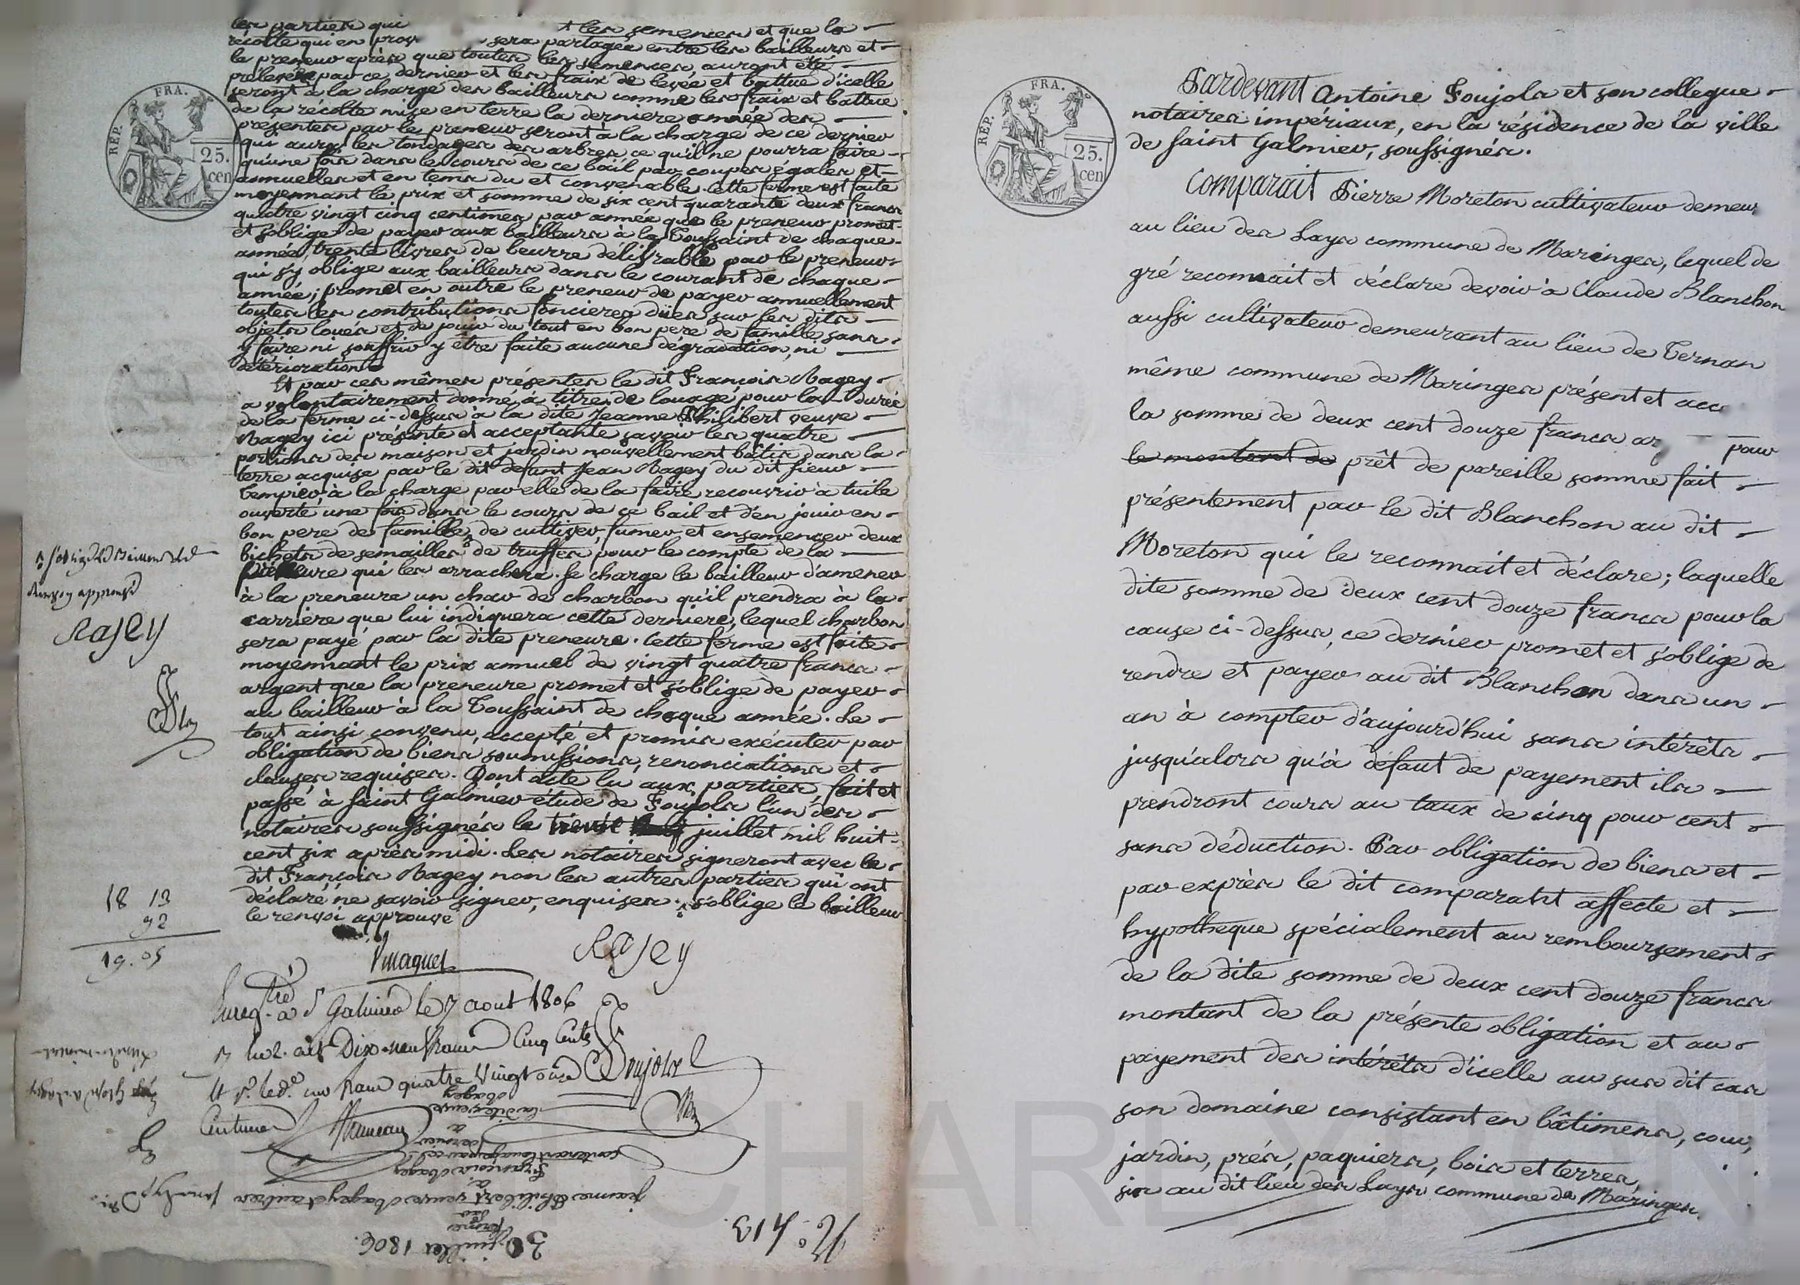 les partier qui les semences et que la
récolte qui en prov sera partagée entre les bailleurs et
le preneur après que toutes les semences auront été
prélevées par ce dernier et les fraix de levée et battue d'icelle
seront à la charge des bailleurs comme les fraix et battue
de la récolte mise en terre la derniere année des
présentes par le preneur seront à la charge de ce dernier
qui aura les tondages des arbres ce qu'il ne pourra faire
qu'une fois dans le cours de ce bail par coupes égales et
annuelles et en tems du et convenable. Cette ferme est faite
moyennant le prix et somme de six cent quarante deux francs
quatre vingt cinq centimes par année que le preneur promet
et s'oblige de payer aux bailleurs à la Toussaint de chaque
année, trente livres de beurre délivrable par le preneur
qui s'y oblige aux bailleurs dans le courant de chaque
année; promet en outre le preneur de payer annuellement
toutes les contributions foncieres dües sur les dits
objets loués et de jouir du tout en bon pere de famille, sans
y faire ni souffrir y être faite aucune dégradation, ni
détérioration.
Et par ces mêmes présentes le dit François Ragey
a volontairement donné, à titre de louage pour la durée
de la ferme ci-dessus à la dite Jeanne Philibert veuve
Ragey ici présente et acceptante savoir les quatre
portions des maison et jardin nouvellement bâtis dans la
terre acquise par le dit défunt Jean Ragey du dit sieur
Tempier, à la charge par elle de la faire recouvrir à tuile
ouverte une fois dans le cours de ce bail et d'en jouir en
bon pere de famille, de cultiver, fumer et ensemencer deux
bichets de semailles de truffes pour le compte de la
preneure qui les arrachera. Se charge le bailleur d'amener
à la preneure un char de charbon qu'il prendra à la
carrière que lui indiquera cette derniere, lequel charbon
sera payé par la dite preneure. Cette ferme est faite
moyennant le prix annuel de vingt quatre francs
argent que la preneure promet et s'oblige de payer
au bailleur à la Toussaint de chaque année. Le
tout ainsi convenu, accepté et promis exécuter par
obligation de biens soumissions, renonciations et
clauses requises. Dont acte lu aux parties, fait et
passé à Saint Galmier étude de Poujols l'un des
notaires soussignés le trente juillet mil huit
cent six après midi. Les notaires signeront avec le
dit François Ragey non les autres parties qui ont
déclaré ne savoir signer, enquises. s'oblige le bailleur
le renvoi approuvé
Ragey
18 13
92
19.05
Ragey
Enregtré à St Galmier le 7 aout 1806
Dix neuf francs Cinq Cents
un franc quatre vingt onze
Centimes
Poujols
30 juillet 1806.
Ferme
par
Jeanne Philibert veuve Ragey et autres
à
François Ragey
contenant louage par ce
dernier
à
la dite veuve
Ragey
No. 413
REP. FRA.
25. cen
REP. FRA.
25. cen
Pardevant Antoine Poujols et son collegue
notaires impériaux, en la résidence de la ville
de Saint Galmier, soussignés.
Comparait Pierre Moreton cultivateur demeur
au lieu des Lays commune de Maringes, lequel de
gré reconnait et déclare devoir à Claude Blanchon
aussi cultivateur demeurant au lieu de Ternan
même commune de Maringes présent et acc
la somme de deux cent douze francs ar pour
le montant de prêt de pareille somme fait
présentement par le dit Blanchon au dit
Moreton qui le reconnait et déclare; laquelle
dite somme de deux cent douze francs pour la
cause ci-dessus, ce dernier promet et s'oblige de
rendre et payer au dit Blanchon dans un
an à compter d'aujourd'hui sans intérêts
jusqu'alors qu'à défaut de payement ils
prendront cours au taux de cinq pour cent
sans déduction. Par obligation de biens et
par exprès le dit comparant affecte et
hypothèque spécialement au remboursement
de la dite somme de deux cent douze francs
montant de la présente obligation et au
payement des intérêts d'icelle au sus dit cas
son domaine consistant en bâtimens, cour,
jardin, prés, paquiers, bois et terres,
sis au dit lieu des Lays commune de Maringes.
CHARLYRON